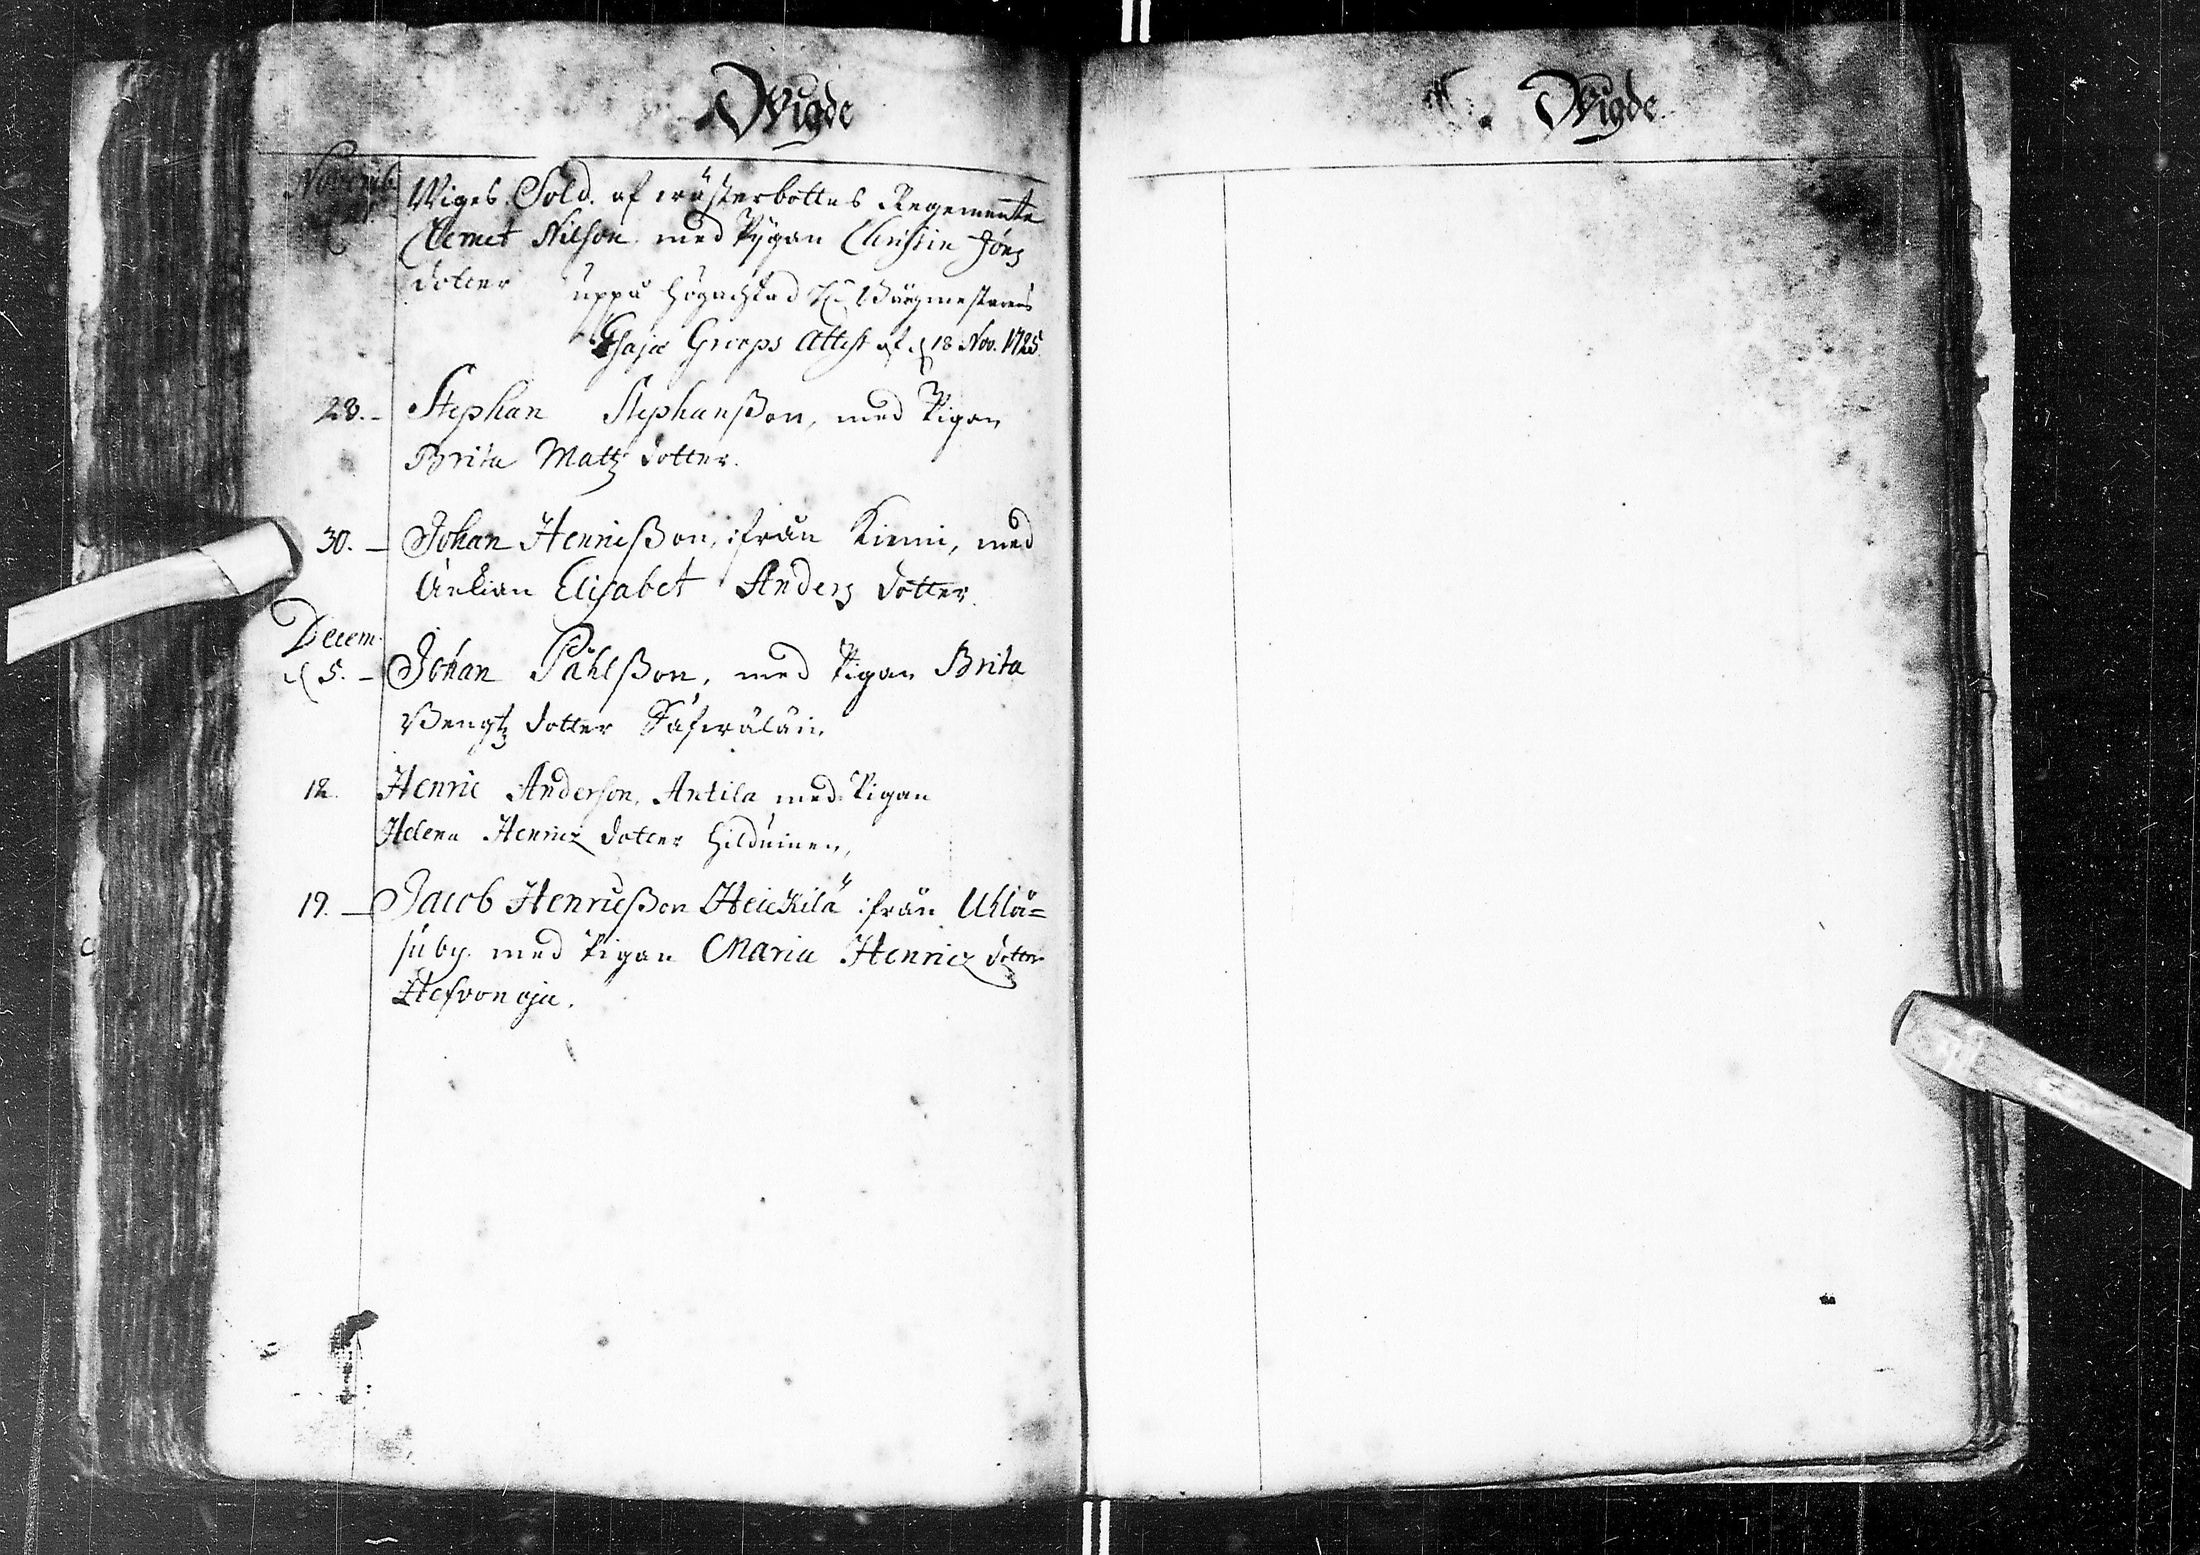 Wigde
Novemb.
Wiges Sold. af wästerbottns Regemente
Clemet Nilson med Pijgan Christin Jönz
dotter uppå Högachtad H: Bärgmestarens
Esajæ Greeps Attest af d 18 Nov. 1725.
28. – Stephan Stephanßon, med Pigan
Brita Mattz dotter.
30. – Johan Henricßon, ifrån Kiemi, med
Änkian Elisabet Anderz dotter.
Decem.
d 5. – Johan Påhlßon, med Pigan Brita
Bengtz dotter Säfwäläin.
12. Henric Anderson, Antila med Pigan
Helena Henricz dotter Hilduinen,
19. – Jacob Henricßon Heickilä ifrån Uhlå=
suby. med Pigan Maria Henricz dotter
Hefvonoja.
Wigde